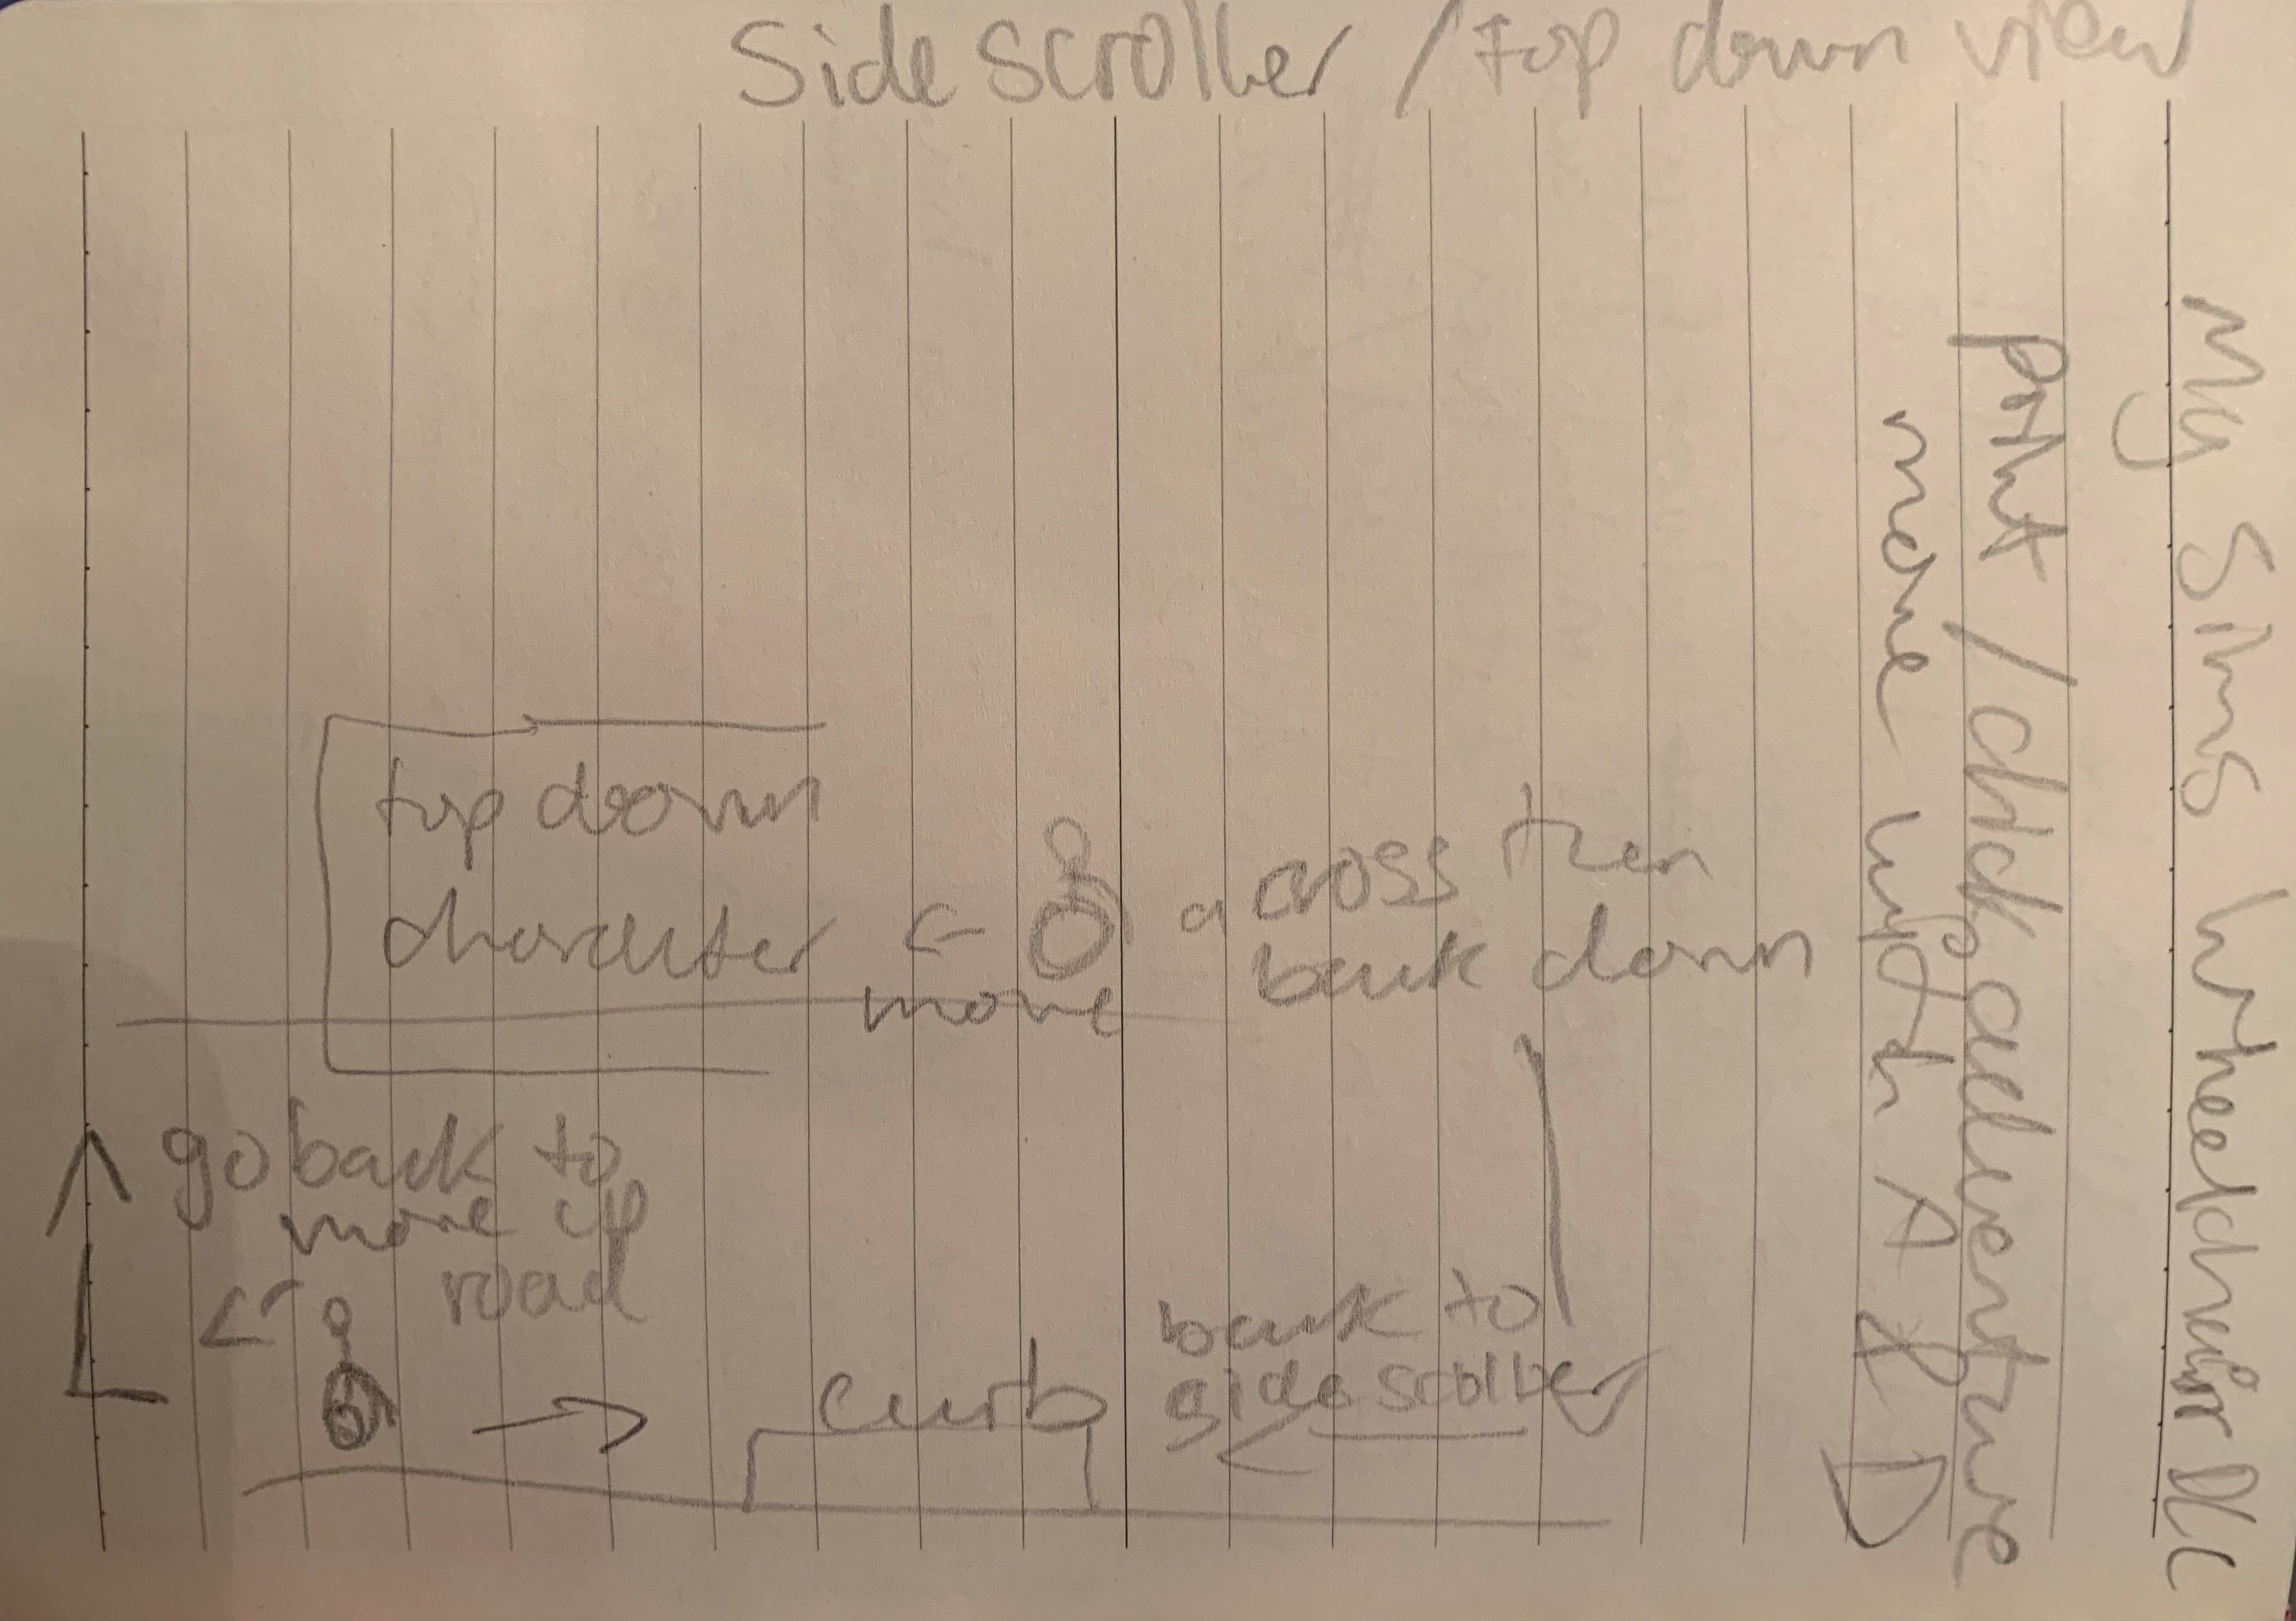 Side scroller / top down view
My Sims Wheelchair DLC
point / click adventure
move with A & D
top down
character
← move
across then
back down
go back to
move up
road
curb
back to
side scoller